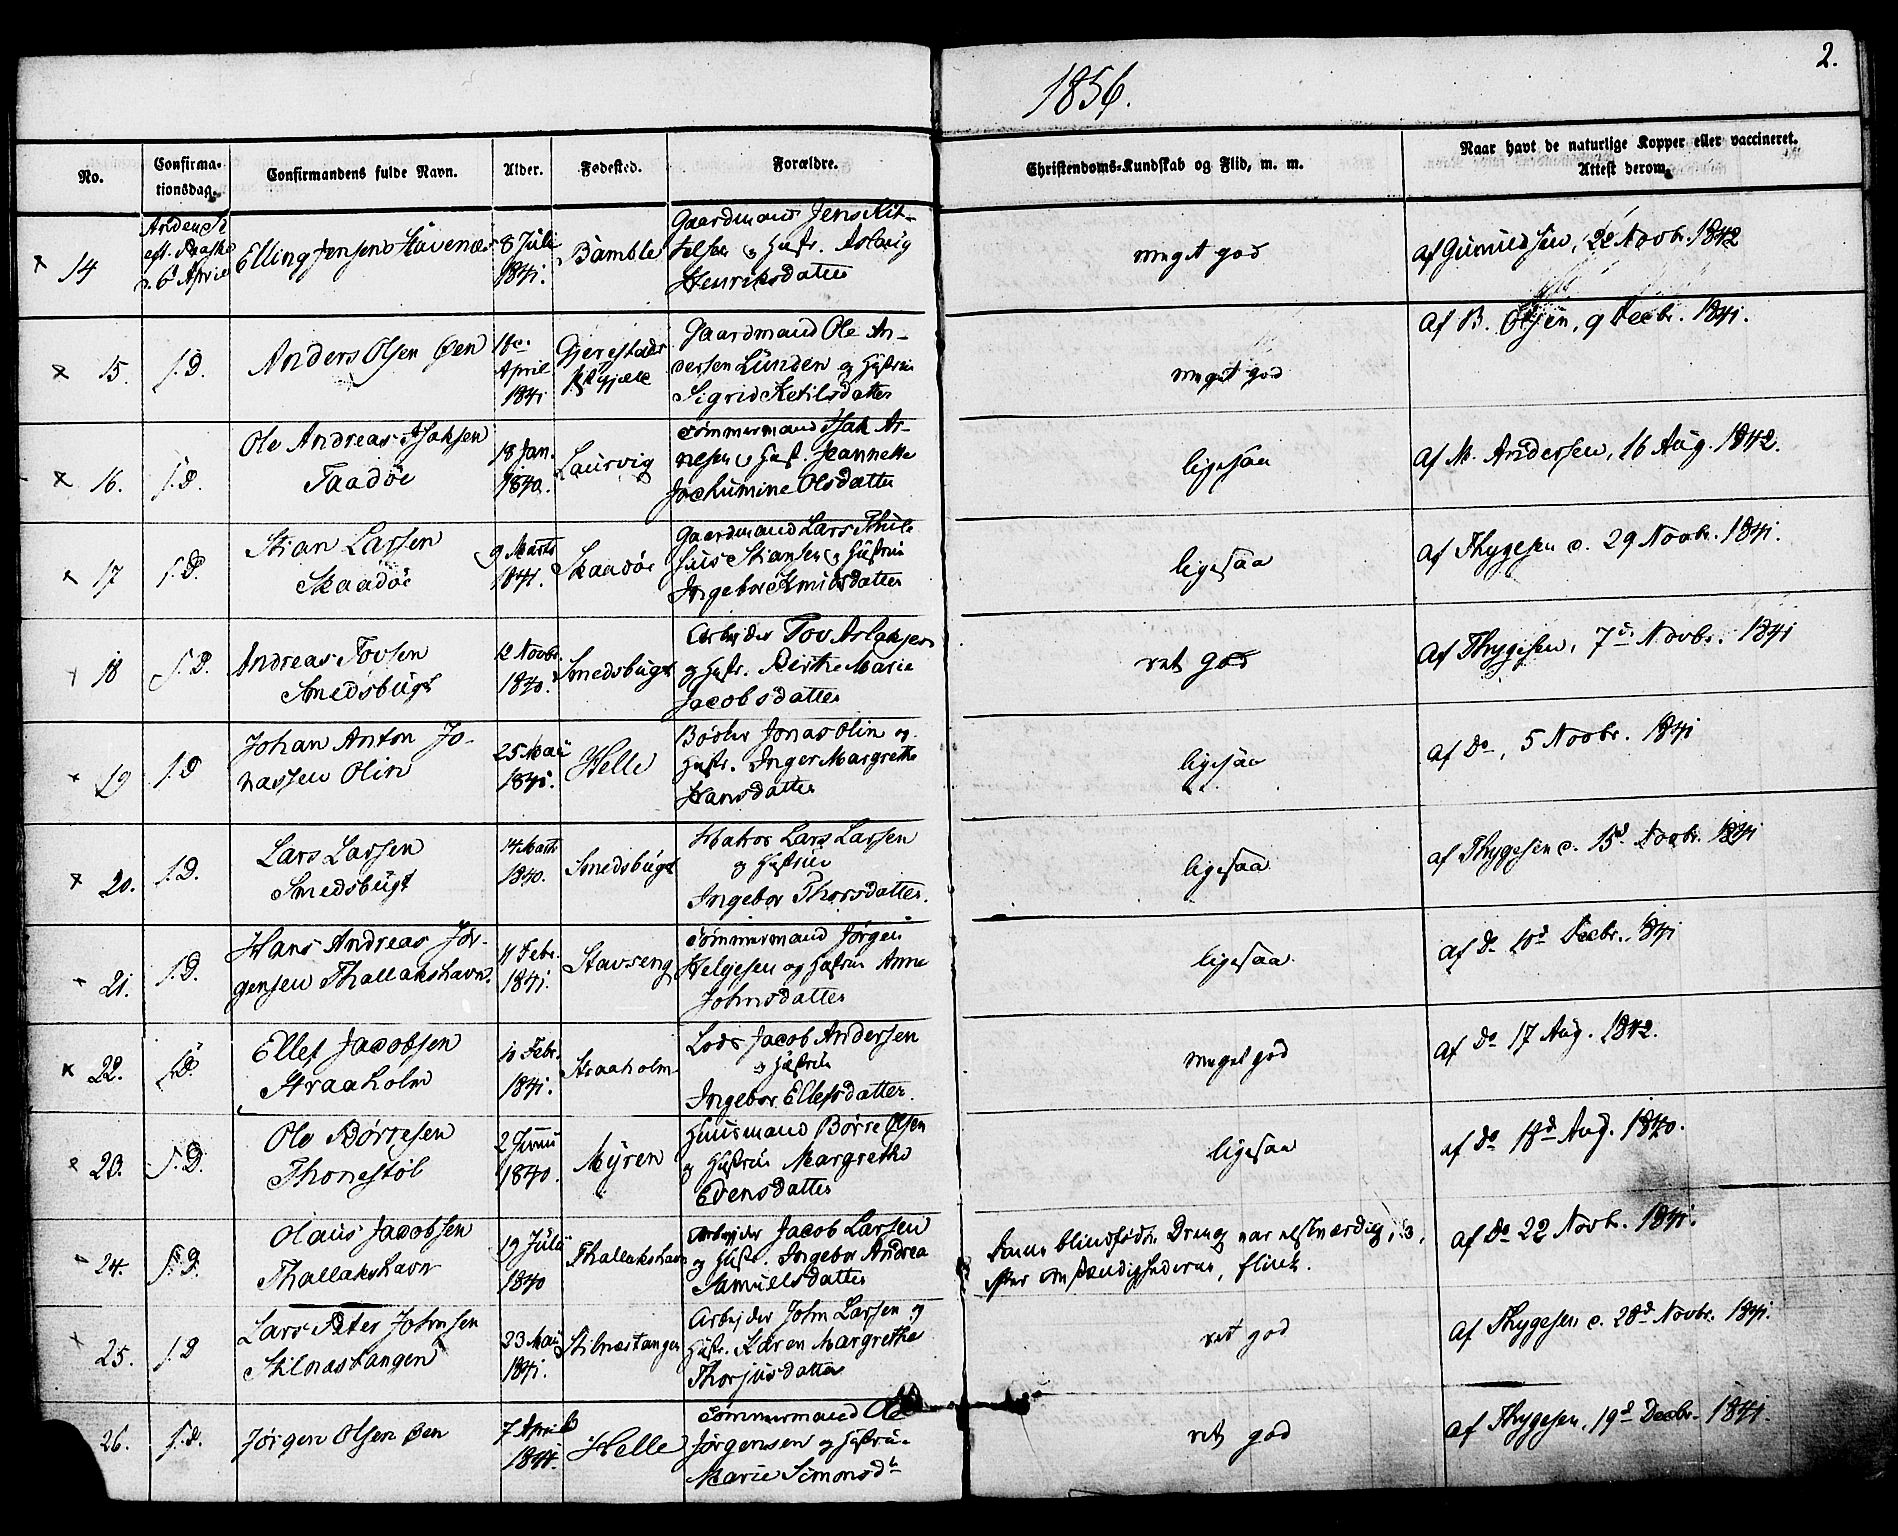 2.
1856.
No.
Confirma-
tionsdag.
Confirmandens fulde Navn.
Alder.
Fødested.
Forældre.
Christendoms-Kundskab og Flid, m. m.
Naar havt de naturlige Kopper eller vaccineret.
Attest derom.
14
Anden S.
eft. Paaske
d. 6 April
Elling Jensen Stavenæs
8 Juli
1841.
Bamble
Gaardmand Jens Kit-
telsen og Hustr. Aslaug
Henriksdatter
meget god
af Gunuldsen, 22 Novbr. 1842
15.
s. D.
Anders Olsen Øen
18e
April
1841
Gjerestads
Gaardmand Ole An-
dersen Lunden og Hustru
Sigrid Ketilsdatter
meget god
af B. Olsen, 9 Decbr. 1841.
16.
s. D.
Ole Andreas Isaksen
Taadøe
18 Jan.
1840.
Laurvig
Tømmermand Isak Ar-
nesen og Hust. Jeannette
Jochumine Olsdatter
ligesaa
af M. Andersen, 16 Aug. 1842.
17
s. D.
Stian Larsen
Skaadøe
9 Marts
1841.
Skaadøe
Gaardmand Lars Thule
Stiansen og Hustrue
Ingebor Knudsdatter
ligesaa
af Thygesen d. 29 Novbr. 1841.
18
s. D.
Andreas Tovsen
Smedsbugt
12 Novbr.
1840.
Smedsbugt
Arbejder Tov Aslaksen
og Hustr. Berthe Marie
Jacobsdatter
ret god
af Thygesen, 7d. Novbr. 1841
19
s. D
Johan Anton Jo-
nassen Olin
25 Maii
1841.
Helle
Bødker Jonas Olin og
Hustr. Inger Margrethe
Hansdatter
ligesaa
af Do, 5 Novbr. 1841
20.
s. D.
Lars Larsen
Smedsbugt
14 Marts
1840.
Smedsbugt
Matros Lars Larsen
og Hustrue
Ingebor Thorsdatter.
ligesaa
af Thygesen d. 15d Novbr. 1841
21.
s. D.
Hans Andreas Jør-
gensen Thallakshavn.
11 Febr.
1841.
Stavseng
Tømmermand Jørgen
Helgesen og Hustrue Anne
Johnsdatter
ligesaa
af Do 10d Decbr. 1841
22.
s. D.
Ellef Jacobsen
Straaholm
10 Febr.
1841.
Straaholm
Lods Jacob Andersen
og Hustrue
Ingebor Ellefsdatter.
meget god
af Do 17 Aug. 1842.
23.
s. D.
Ole Børresen
Thonestøl
2 Junii
1840.
Myren
Huusmand Børre Olsen
og Hustrue Margrethe
Evensdatter
ligesaa
af Do 18d Aug. 1840.
24.
s. D.
Olaus Jacobsen
Thallakshavn
19 Julii
1840
Thallakshavn
Arbejder Jacob Larsen
og Hustr. Ingebor Andrea
Samuelsdatter
Denne blindfødte Dreng var elskværdig, og,
efter Omstændighederne, flink.
af Do 22 Novb. 1841.
25.
s. D
Lars Peter Johnsen
Stilnæstangen
23 Maii
1841.
Stilnæstangen
Arbejder John Larsen og
Hustr. Karen Margrethe
Thorjusdatter
ret god
af Thygesen d. 28d Novbr. 1841.
26.
s. D.
Jørgen Olsen Øen
7 April
1841.
Helle
Tømmermand Ole
Jørgensen og Hustrue
Marie Simonsdr
ret god
af Thygesen, 19d Decbr. 1841.